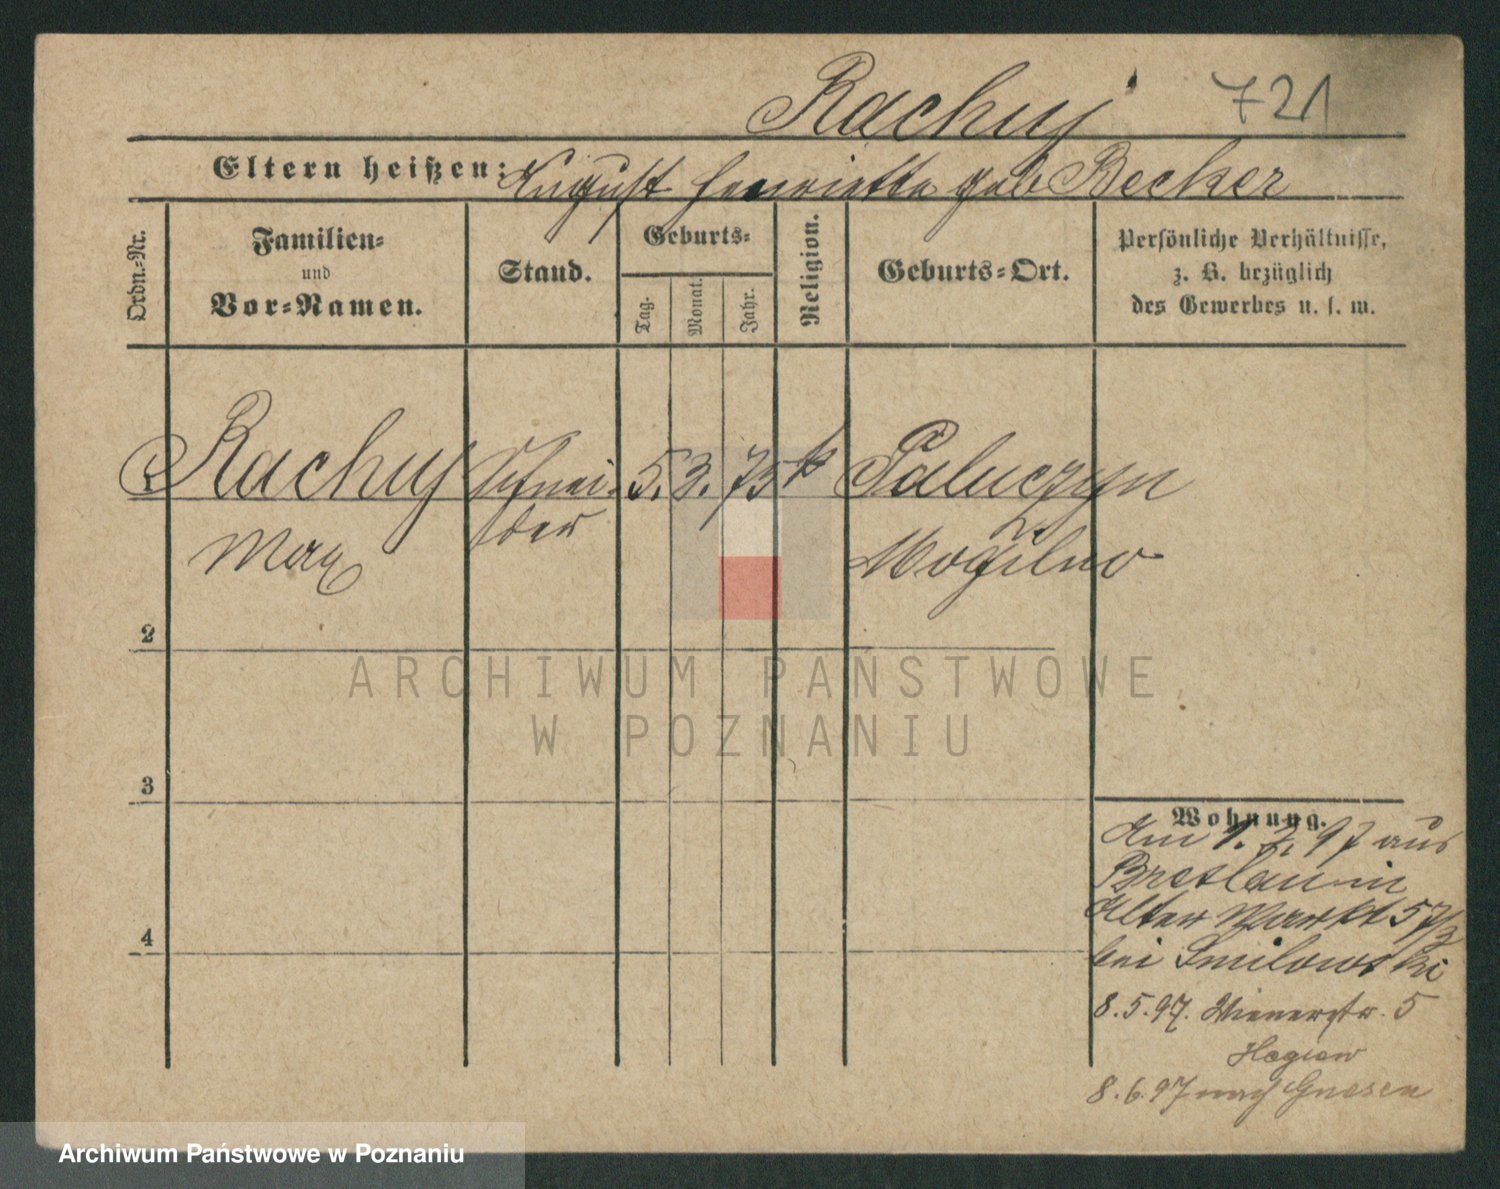 Rachuj 721
Eltern heißen: August Henriette geb Becker
Ordn.-Nr.
Familien-
und
Vor-Namen.
Stand.
Geburts-
Tag.
Monat.
Jahr.
Religion.
Geburts-Ort.
Persönliche Verhältnisse,
z. B. bezüglich
des Gewerbes u. s. w.
1 Rachuj Schnei- 5. 3. 75 k Paluczyn
Max der Mogilno
2
3
4
Wohnung.
Am 1. 2. 97 aus
Breslau in
Alter Markt 57/3
bei Smilowski
8. 5. 97. Wienerstr. 5
8. 6. 97 nach Gnesen
ARCHIWUM PAŃSTWOWE
W POZNANIU
Archiwum Państwowe w Poznaniu